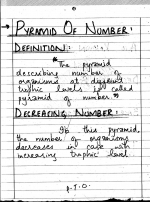 → PYRAMID OF NUMBER:
DEFINITION:
"The pyramid
describing number of
organisms at different
trophic levels is called
pyramid of number"
DECREASING NUMBER:
In this pyramid,
the number of organisms
decreases in case with
increasing trophic level
P.T.O.